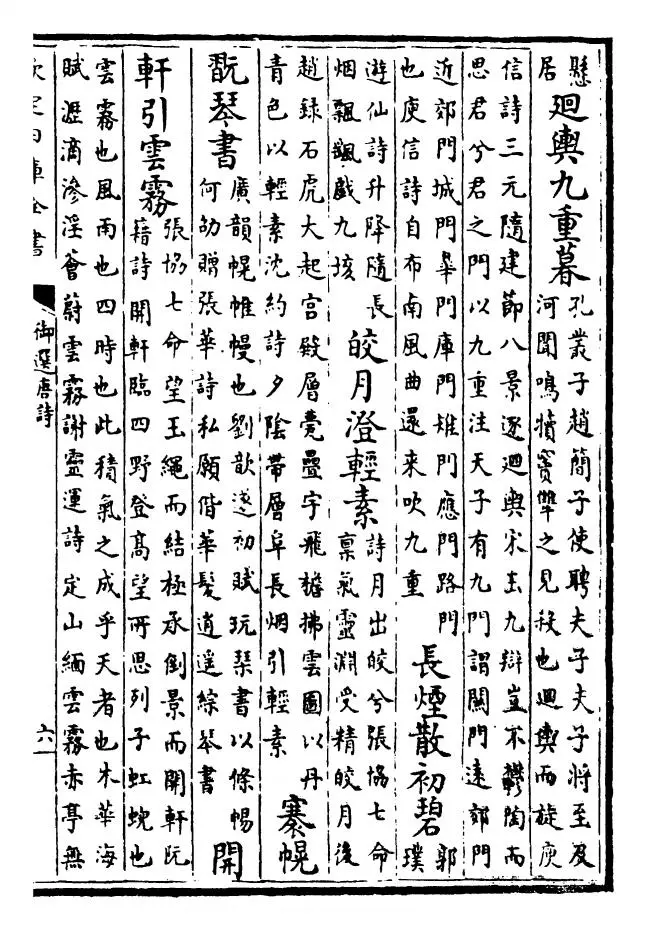 懸
居
廻輿九重暮
孔叢子趙簡子使聘夫子夫子將至及
河聞鳴犢竇犨之見殺也迴輿而旋庾
信詩三元隨建節八景逐迴輿宋玉九辯豈不鬱陶而
思君兮君之門以九重注天子有九門謂關門遠郊門
近郊門城門臯門庫門雉門應門路門
也庾信詩自布南風曲還來吹九重
長煙散初碧
郭
璞
遊仙詩升降隨長
烟飄颻戲九垓
皎月澄輕素
詩月出皎兮張協七命
稟氣靈淵受精皎月後
趙録石虎大起宫殿層甍疊宇飛檐拂雲圖以丹
青色以輕素沈約詩夕陰帶層阜長烟引輕素
褰幌
翫琴書
廣韻幌帷幔也劉歆遂初賦玩琴書以條暢
何劭贈張華詩私願偕華髮逍遥綜琴書
開
軒引雲霧
張協七命望玉繩而結極承倒景而開軒阮
籍詩開軒臨四野登高望所思列子虹蜺也
雲霧也風雨也四時也此積氣之成乎天者也木華海
賦瀝滴滲淫薈蔚雲霧謝靈運詩定山緬雲霧赤亭無
欽定四庫全書
御選唐詩
六